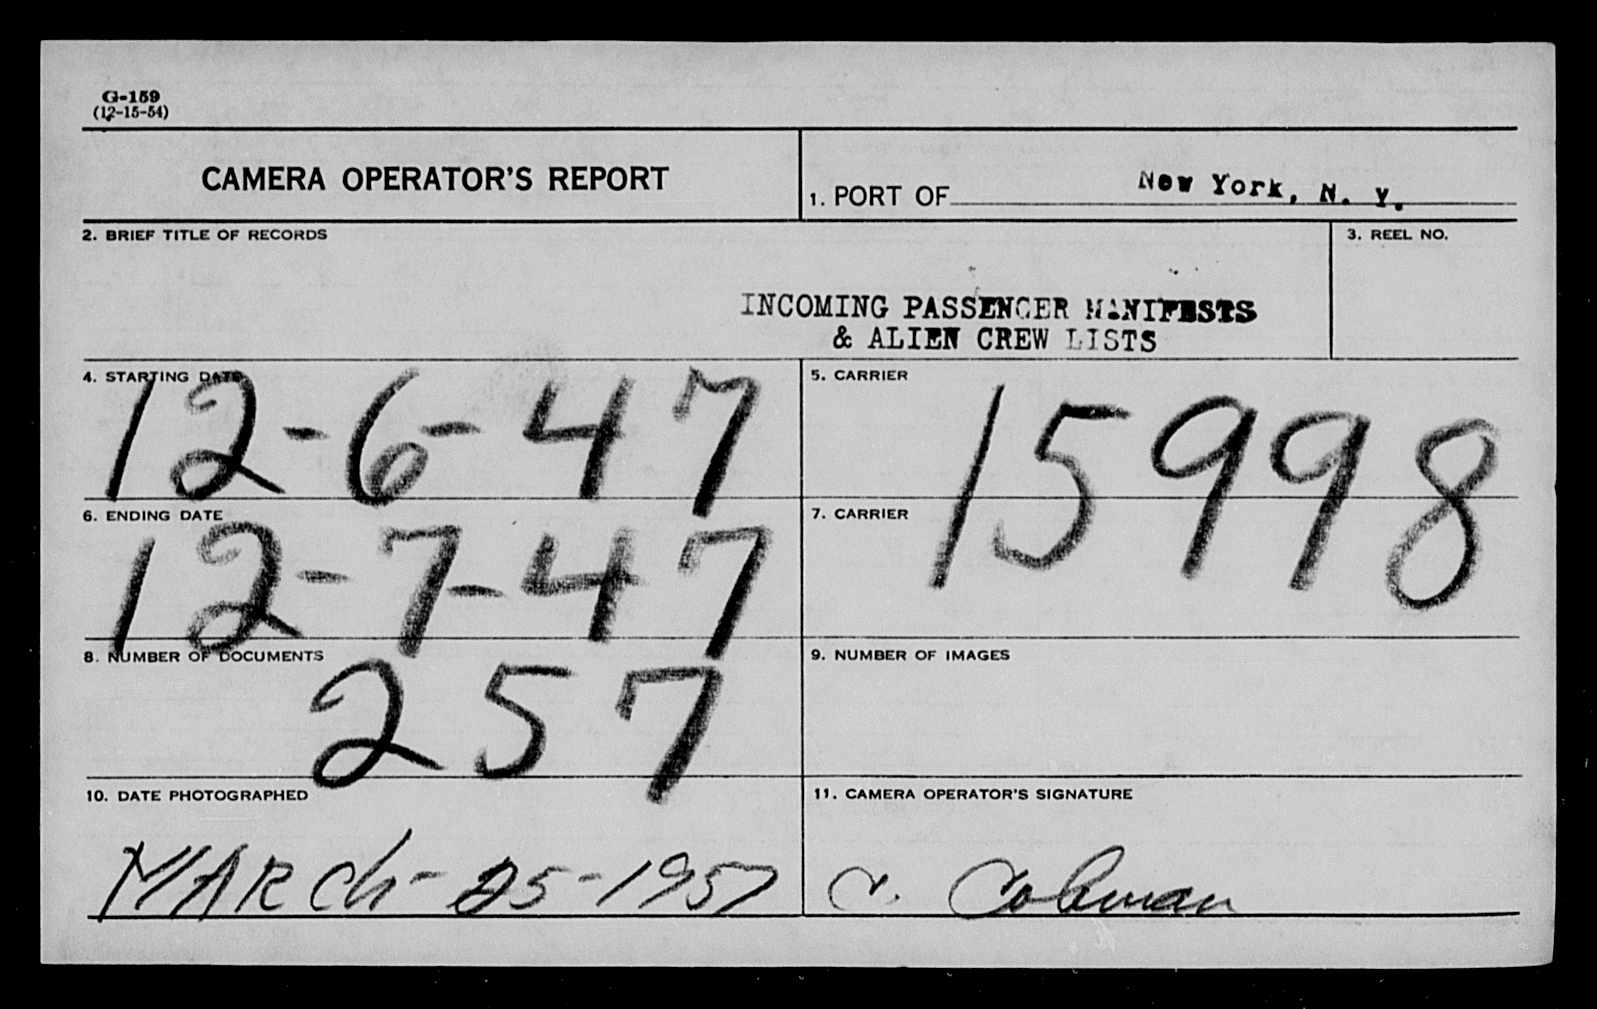 G-159
(12-15-54)
CAMERA OPERATOR'S REPORT
1. PORT OF New York, N. Y.
2. BRIEF TITLE OF RECORDS
3. REEL NO.
INCOMING PASSENGER MANIFESTS
& ALIEN CREW LISTS
4. STARTING DATE
12-6-47
5. CARRIER
15998
6. ENDING DATE
12-7-47
7. CARRIER
8. NUMBER OF DOCUMENTS
257
9. NUMBER OF IMAGES
10. DATE PHOTOGRAPHED
MARCh-25-1957
11. CAMERA OPERATOR'S SIGNATURE
C.